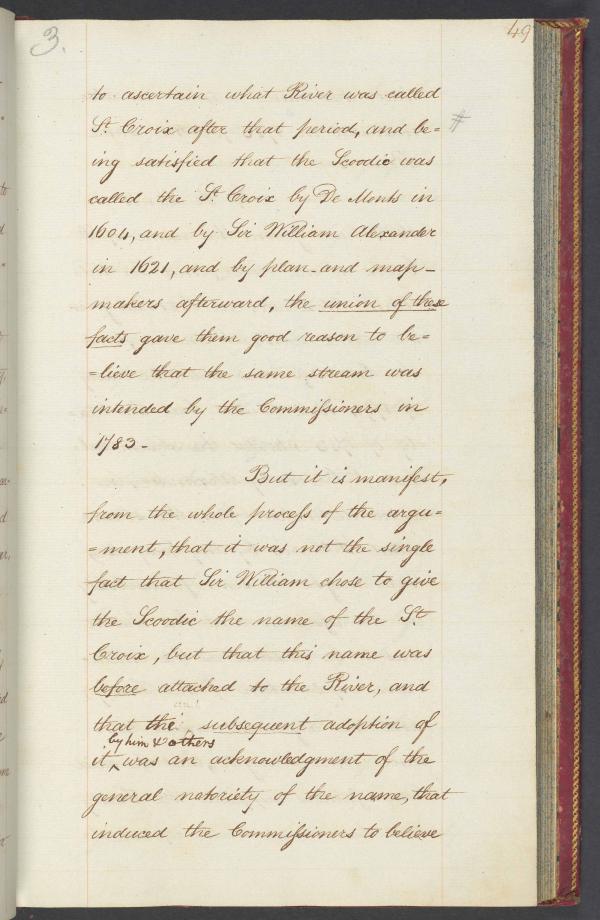 3.
49
to ascertain what River was called
St. Croix after that period, and be=
#
ing satisfied that the Scoodic was
called the St. Croix by De Monts in
1604, and by Sir William Alexander
in 1621, and by plan-and map-
makers afterward, the union of these
facts gave them good reason to be=
=lieve that the same stream was
intended by the Commissioners in
1783-
But it is manifest,
from the whole process of the argu=
=ment, that it was not the single
fact that Sir William chose to give
the Scoodic the name of the St.
Croix, but that this name was
before attached to the River, and
that the subsequent adoption of
by him & others
it ‸ was an acknowledgment of the
general notoriety of the name, that
induced the Commissioners to believe